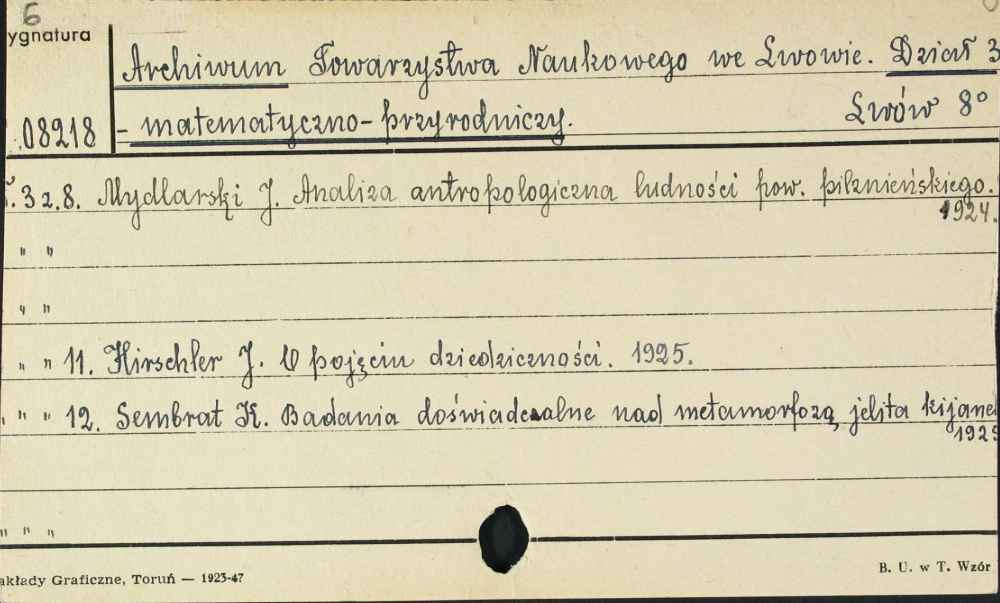 6
ygnatura
Archiwum Towarzystwa Naukowego we Lwowie. Dział 3
08218 - matematyczno-przyrodniczy. Lwów 8°
. 3 z. 8. Mydlarski J. Analiza antropologiczna ludności pow. pilznieńskiego.
1924.
" "
" "
" " 11. Hirschler J. O pojęciu dziedziczności. 1925.
" " " 12. Sembrat K. Badania doświadczalne nad metamorfozą jelita kijanek
1925
" " "
akłady Graficzne, Toruń — 1923-47
B. U. w T. Wzór